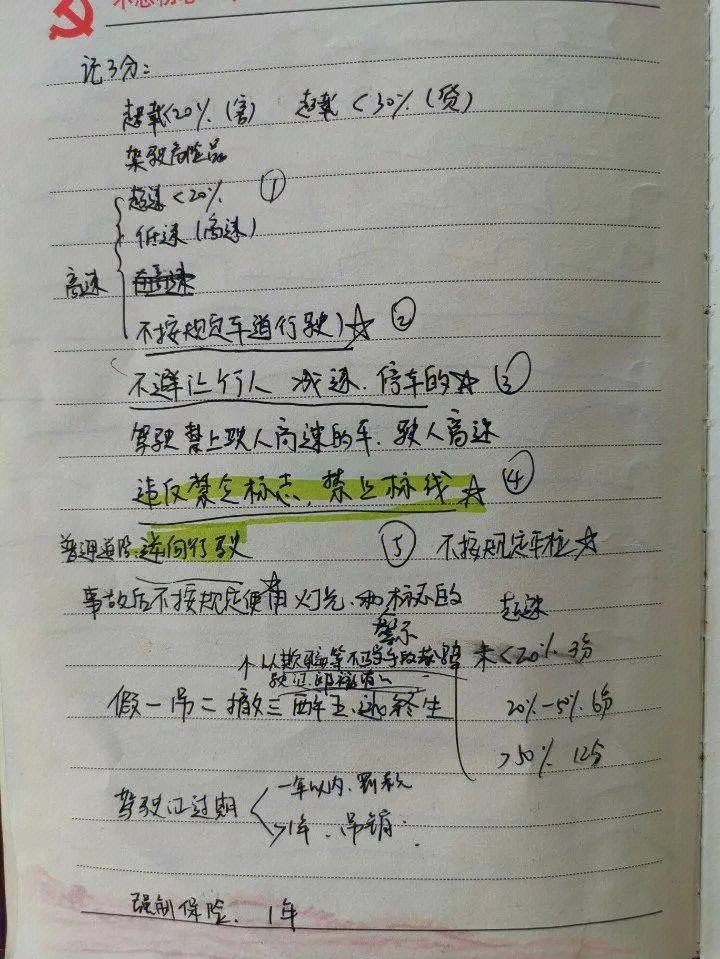 记3分:
超载<20%.(客) 超载<30%(货)
超速<20%. ①
低速(高速)
高速
不按规定车道行驶)☆ ②
不避让行人 减速.停车的☆ ③
驾驶禁止驶入高速的车.驶入高速
违反禁令标志,禁止标线☆ ④
普通道路.逆向行驶 ⑤ 不按规定车☆
事故后不按规定使用灯光.和标志的 超速
警示
个以欺骗等不当手段
<20% 3分
假一吊二撤三醉五.逃终生 20%-50%.6分
>50% 12分
驾驶证过期 一年以内.罚款
>1年.吊销.
强制保险. 1年